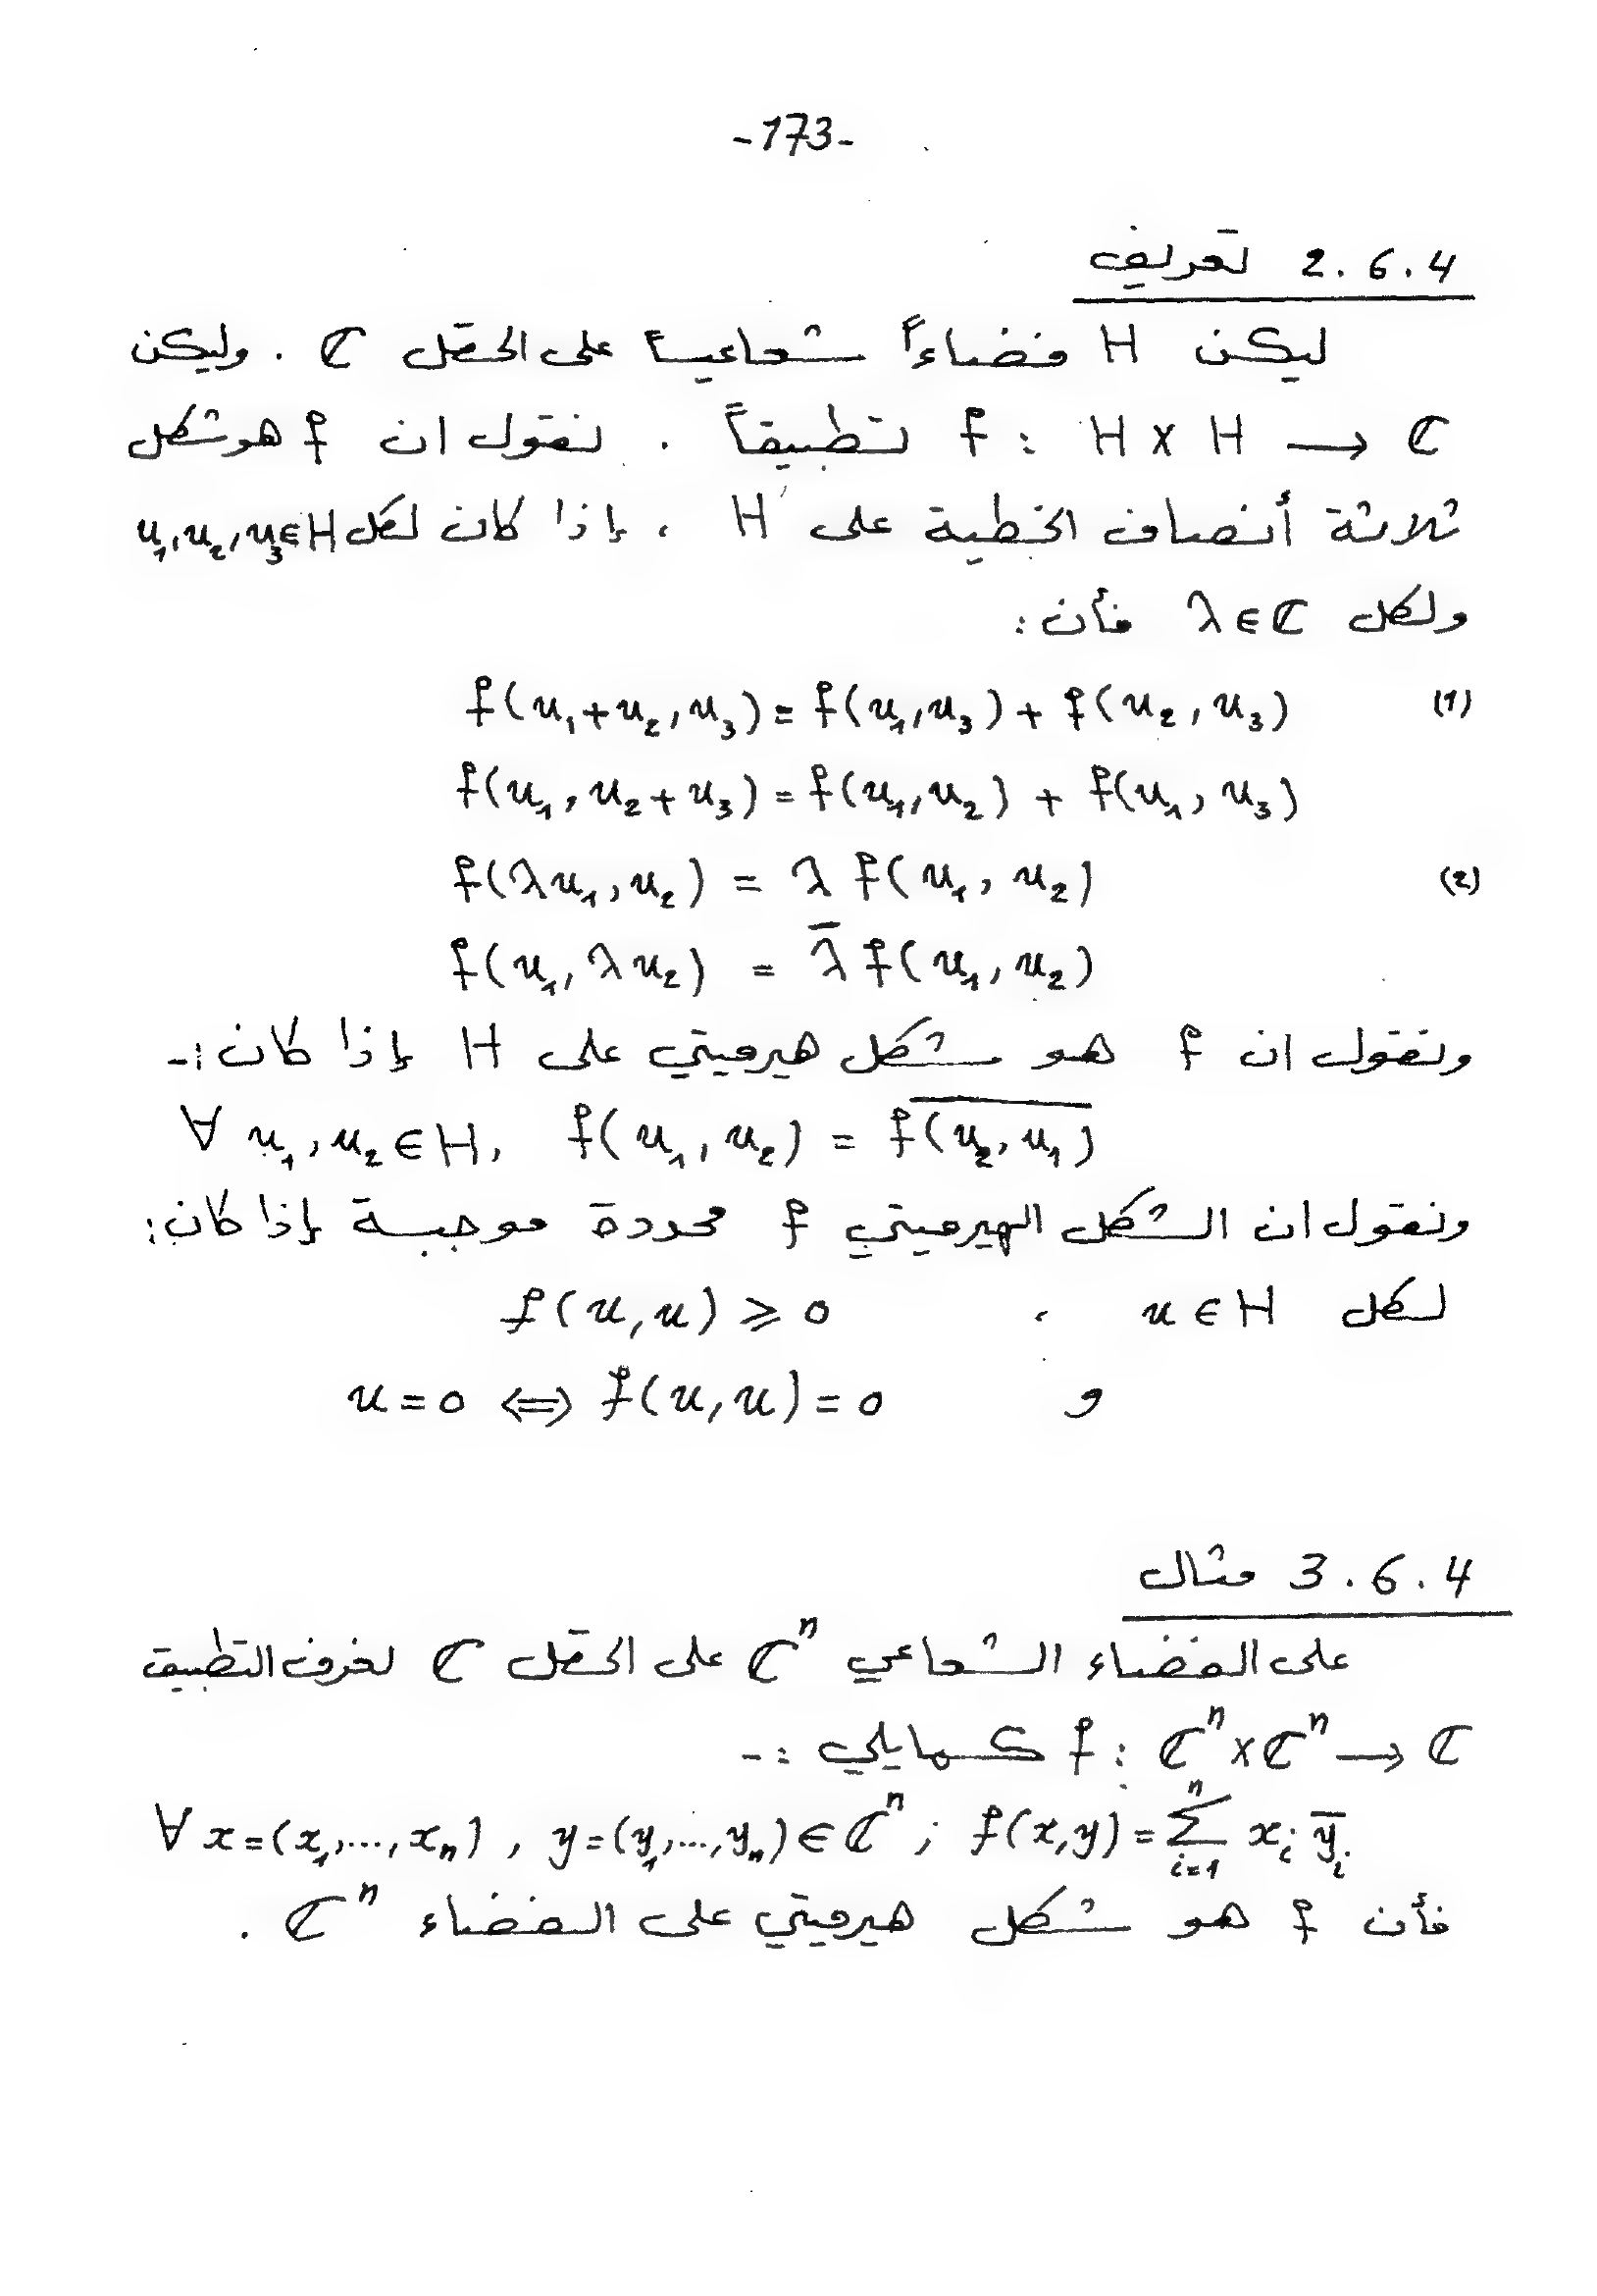 -173-
2.6.4 تعريف
ليكن H فضاءاً شعاعياً على الحقل ℂ . وليكن
f : H × H → ℂ تطبيقاً . نقول ان f هو شكل
ثلاثة أنصاف الخطية على H ، إذا كان لكل u₁,u₂,u₃∈H
ولكل λ∈ℂ فأن:
(1) f(u₁+u₂,u₃)=f(u₁,u₃)+f(u₂,u₃)
f(u₁,u₂+u₃)=f(u₁,u₂)+f(u₁,u₃)
(2) f(λu₁,u₂) = λ f(u₁,u₂)
f(u₁,λu₂) = λ̅ f(u₁,u₂)
ونقول ان f هو شكل هيرميتي على H إذا كان :-
∀ u₁,u₂∈H, f(u₁,u₂) = \overline{f(u₂,u₁)}
ونقول ان الشكل الهيرميتي f محددة موجبة إذا كان:
لكل u∈H ، f(u,u) ⩾ 0
و u=0 ⟺ f(u,u)=0
3.6.4 مثال
على الفضاء الشعاعي ℂⁿ على الحقل ℂ لنعرف التطبيق
f : ℂⁿ×ℂⁿ → ℂ كمايلي :-
∀ x=(x₁,...,xₙ) , y=(y₁,...,yₙ)∈ℂⁿ ; f(x,y)=\sum_{i=1}^{n} x_i \overline{y}_i
فأن f هو شكل هيرميتي على الفضاء ℂⁿ .